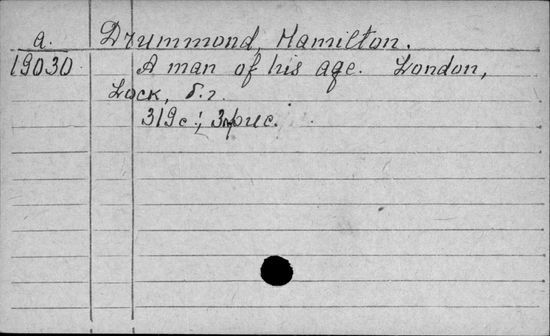 a. Drummond, Hamilton.
19030 A man of his age. London,
Lock, б.г.
319с.; 3 рис.